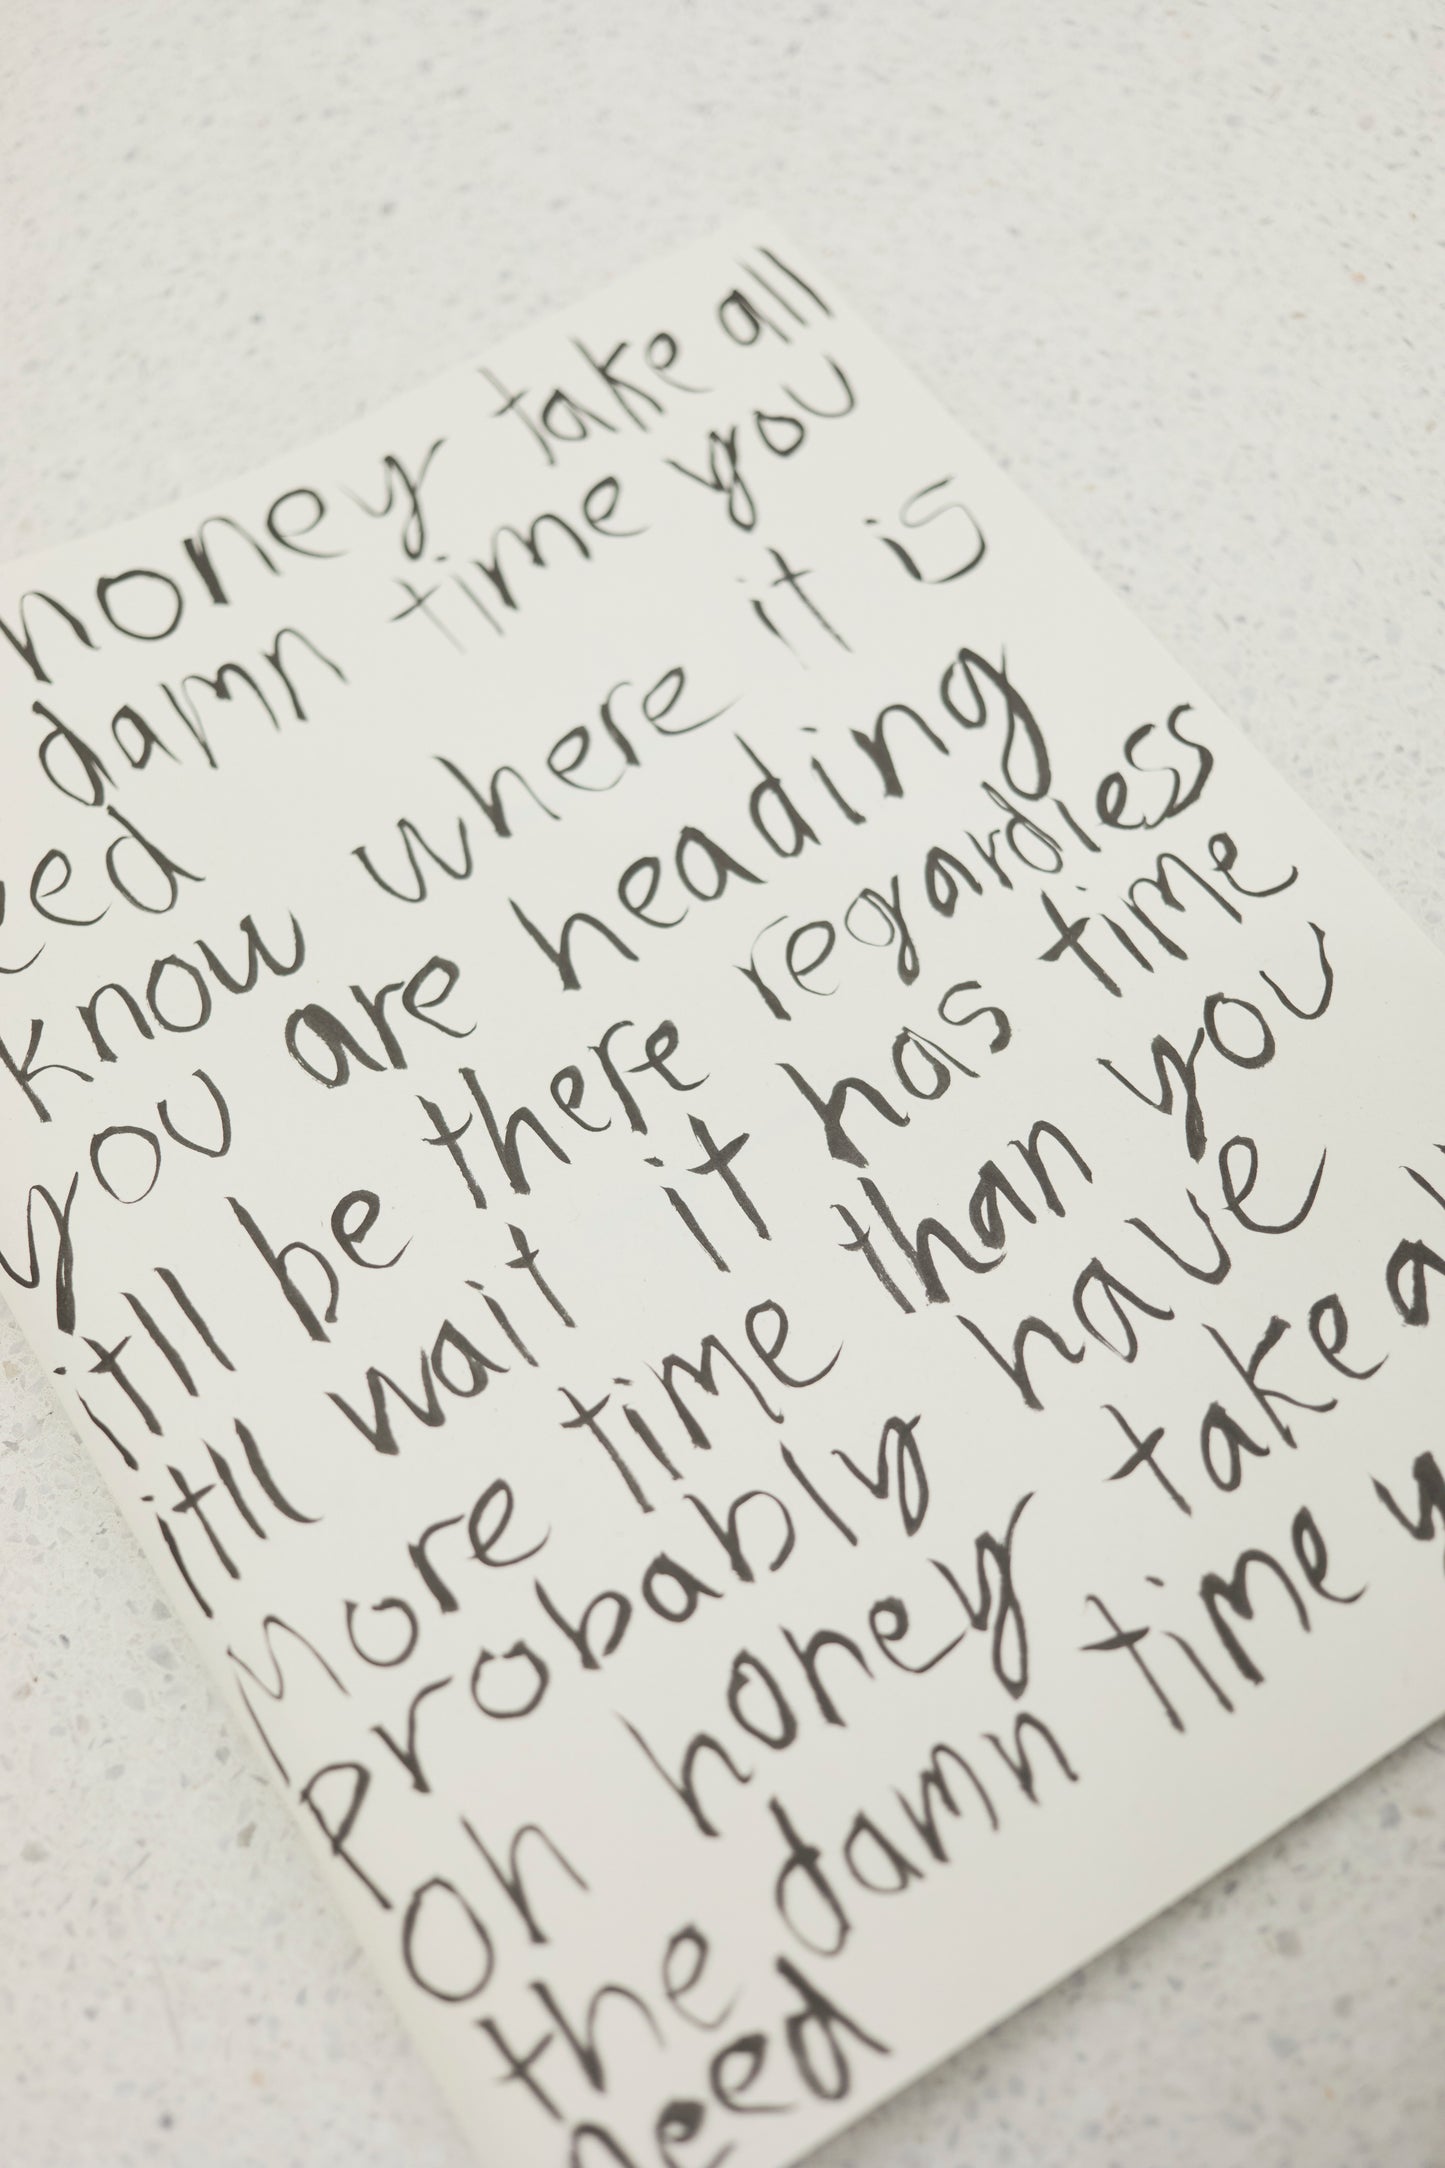 honey take all
damn time you
need
know where it is
you are heading
itll be there regardless
itll wait it has time
more time than you
probably have
oh honey take all
the damn time y
need